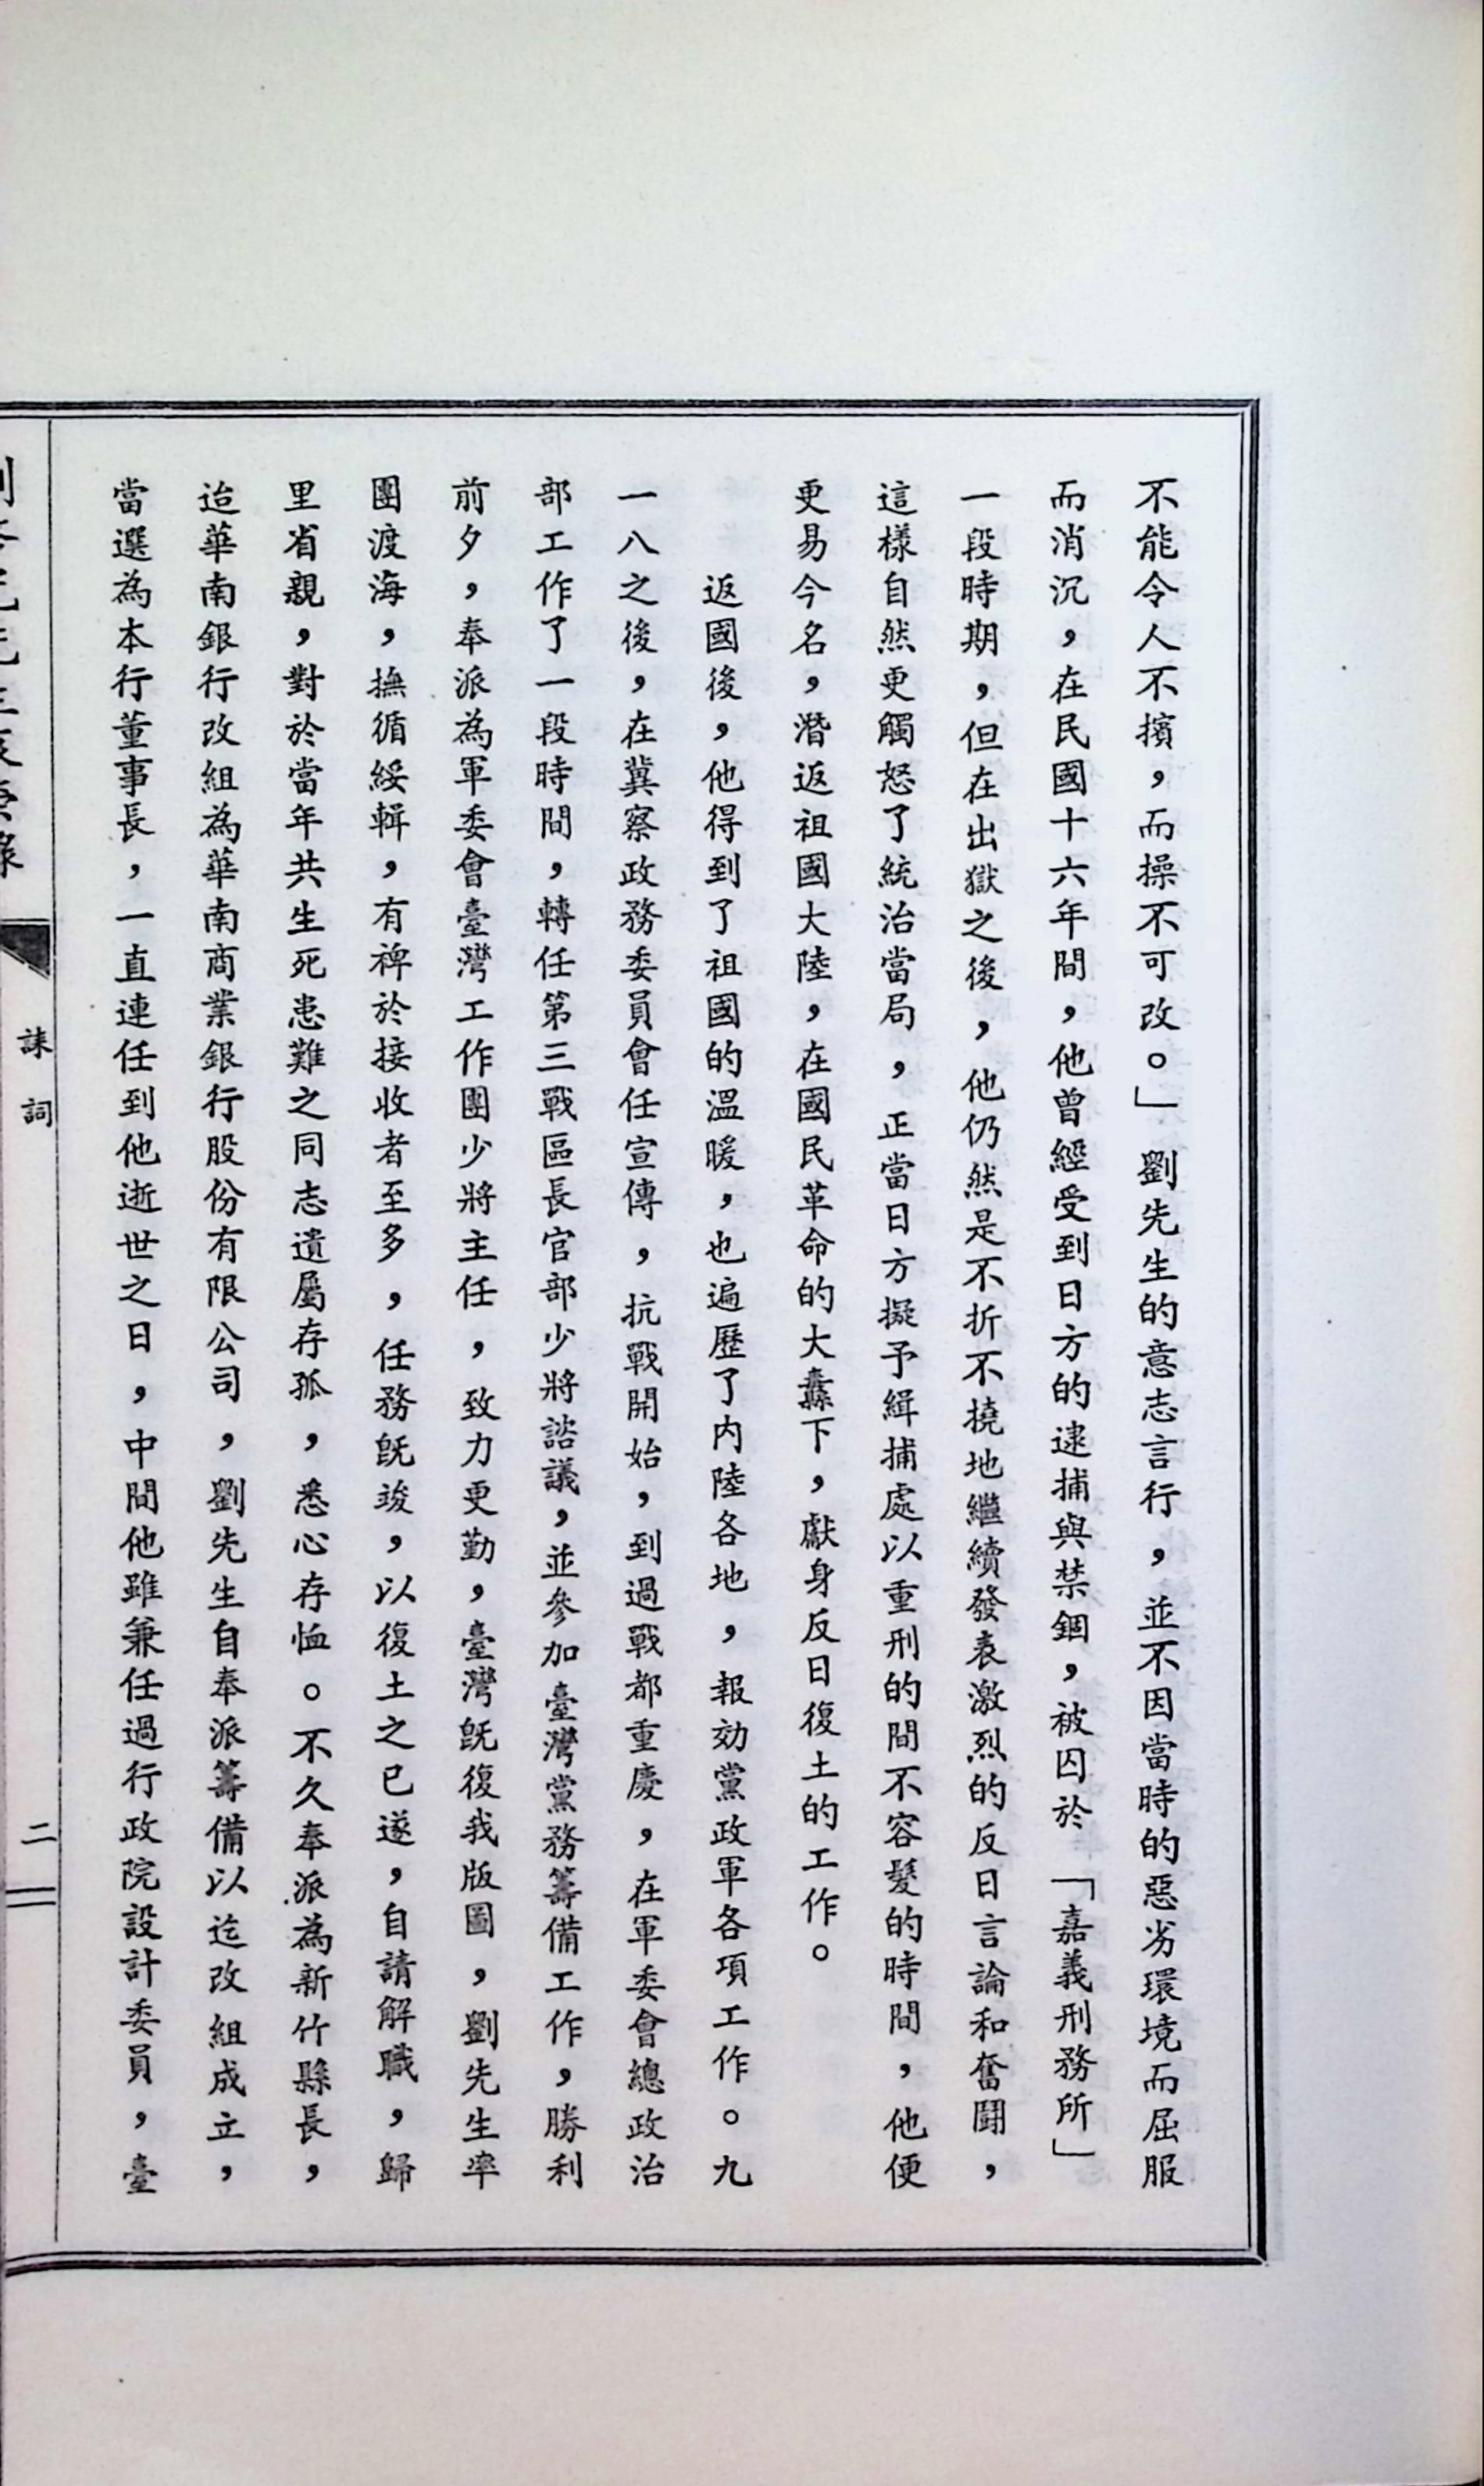 不能令人不擯，而操不可改。」劉先生的意志言行，並不因當時的惡劣環境而屈服
而消沉，在民國十六年間，他曾經受到日方的逮捕與禁錮，被囚於「嘉義刑務所」
一段時期，但在出獄之後，他仍然是不折不撓地繼續發表激烈的反日言論和奮鬪，
這樣自然更觸怒了統治當局，正當日方擬予緝捕處以重刑的間不容髮的時間，他便
更易今名，潛返祖國大陸，在國民革命的大纛下，獻身反日復土的工作。
返國後，他得到了祖國的溫暖，也遍歷了內陸各地，報効黨政軍各項工作。九
一八之後，在冀察政務委員會任宣傳，抗戰開始，到過戰都重慶，在軍委會總政治
部工作了一段時間，轉任第三戰區長官部少將諮議，並參加臺灣黨務籌備工作，勝利
前夕，奉派為軍委會臺灣工作團少將主任，致力更勤，臺灣旣復我版圖，劉先生率
團渡海，撫循綏輯，有裨於接收者至多，任務旣竣，以復土之已遂，自請解職，歸
里省親，對於當年共生死患難之同志遺屬存孤，悉心存恤。不久奉派為新竹縣長，
迨華南銀行改組為華南商業銀行股份有限公司，劉先生自奉派籌備以迄改組成立，
當選為本行董事長，一直連任到他逝世之日，中間他雖兼任過行政院設計委員，臺
誄詞
二